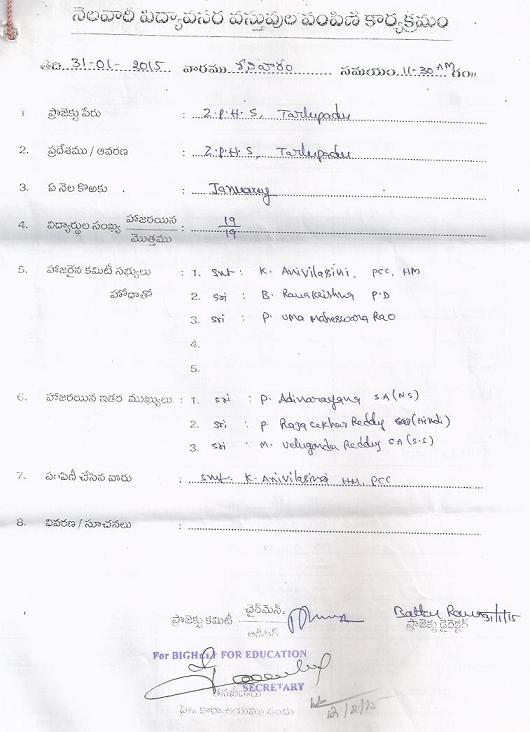 నెలవారీ విద్యావసర వస్తువుల పంపిణీ కార్యక్రమం
తేది 31-01-2015 వారము శనివారం సమయం 11-30 AM గం॥
1. ప్రాజెక్టు పేరు : Z.P.H.S, Tarlupadu
2. ప్రదేశము / ఆవరణ : Z.P.H.S, Tarlupadu
3. ఏ నెల కొఱకు : January
4. విద్యార్థుల సంఖ్య హాజరయిన / మొత్తము : 19/19
5. హాజరైన కమిటీ సభ్యులు : 1. Smt : K. Anivilasini, PCC, HM
హోదాతో 2. Sri : B. Ramakrishna P.D
3. Sri : P. Uma Maheswara Rao
4.
5.
6. హాజరయిన ఇతర ముఖ్యులు : 1. Sri : P. Adinarayana S.A (N.S)
2. Sri : P. Rajasekhar Reddy (Hindi)
3. Sri : M. Veluganda Reddy S.A (S.S)
7. పంపిణీ చేసిన వారు : Smt. K. Anivilasini HM, PCC
8. వివరణ / సూచనలు :
ప్రాజెక్టు కమిటీ ఛైర్మెన్,
ఆడిటర్
ప్రాజెక్టు డైరెక్టర్
31/1/15
For BIGHELP FOR EDUCATION
SECRETARY